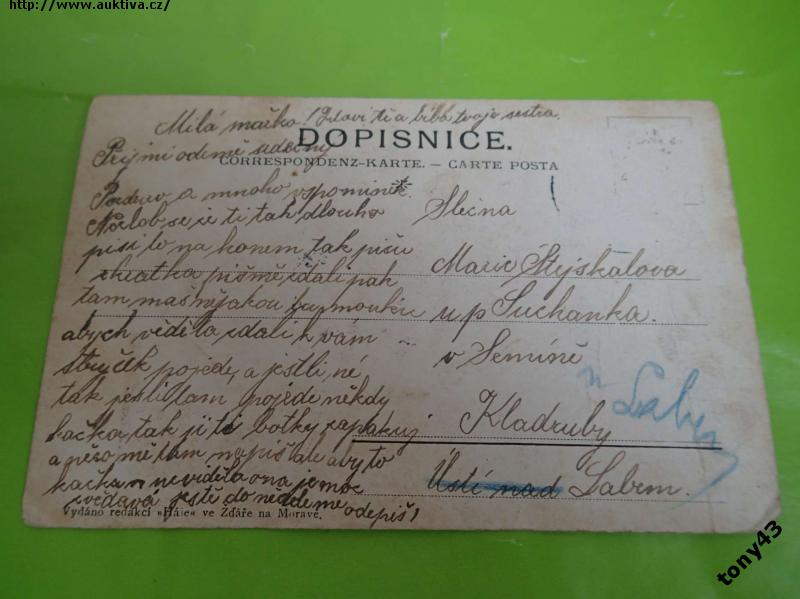 http://www.auktiva.cz/
Milá mařko! Zdraví tě a líbá tvoje sestra.
DOPISNICE.
CORRESPONDENZ-KARTE. – CARTE POSTA
Přijmi odemě srdečný
Pozdrav a mnoho vspomínek.
se že ti tak dlouho
píši to na konem tak píšu
zkrátka pišmě zdali pak
tam máš nějakou harmoniku
abych věděla zdali k vám
strýček pojede, a jestli né
tak jestli tam pojede někdy
kačka tak ji ti botky zapakuj
a mě tam napiš ale aby to
kačka neviděla ona je moc
zvědavá ještě do neděle mě
odepiš!
Slečna
Marie Štýskalova
u p Suchanka.
v Semíně
n Labem
Kladruby
Ústí nad Labem.
Vydáno redakcí »Háje« ve Žďáře na Moravě.
tony43